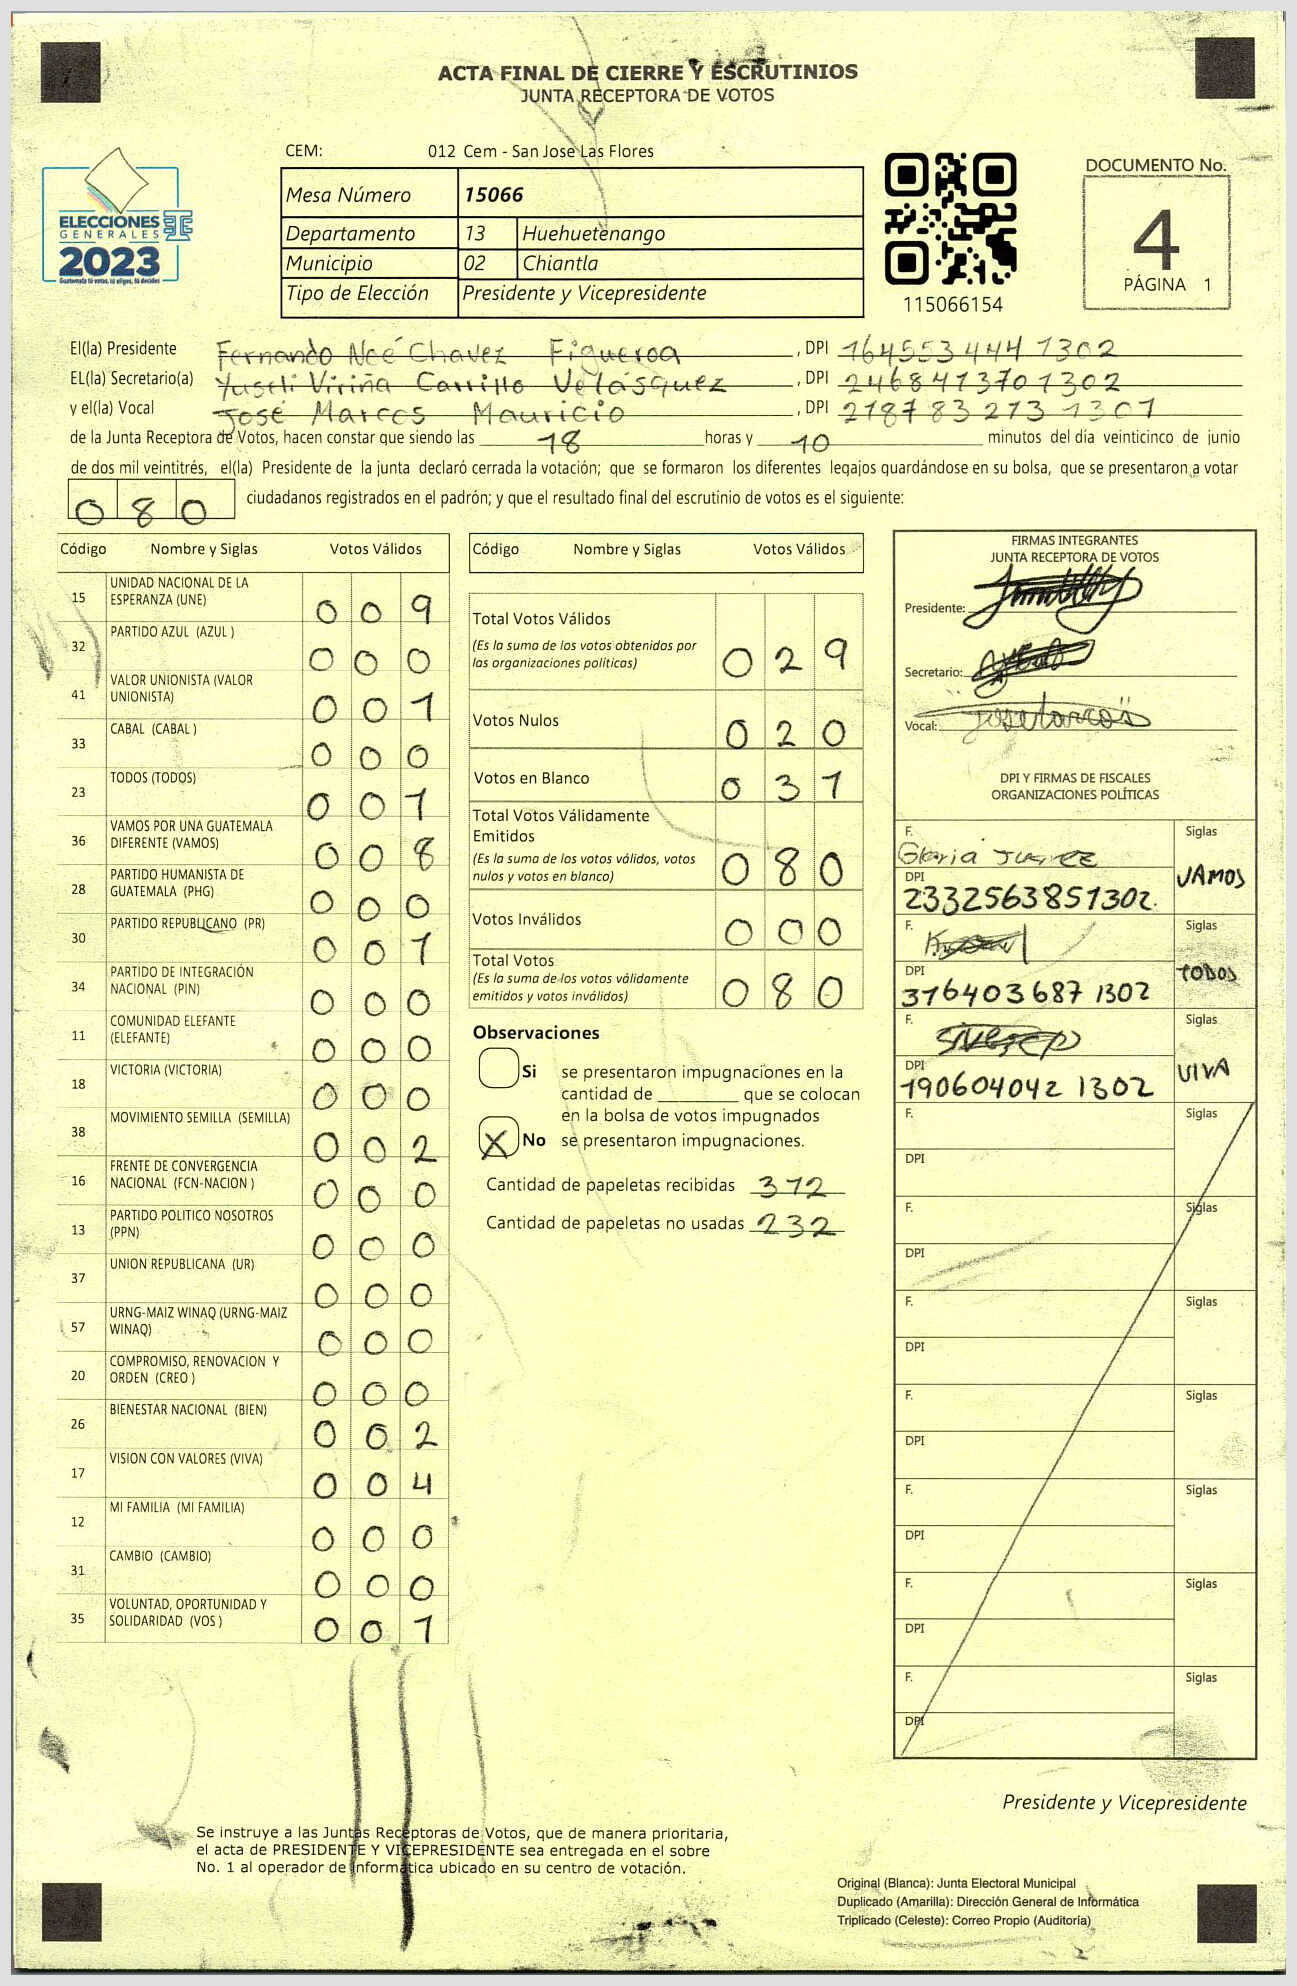 ACTA FINAL DE CIERRE Y ESCRUTINIOS
JUNTA RECEPTORA DE VOTOS
CEM: 012 Cem - San Jose Las Flores
ELECCIONES
GENERALES
2023
Guatemala tú votas, tú eliges, tú decides
Mesa Número 15066
Departamento 13 Huehuetenango
Municipio 02 Chiantla
Tipo de Elección Presidente y Vicepresidente
115066154
DOCUMENTO No.
4
PÁGINA 1
El(la) Presidente Fernando Noé Chavez Figueroa, DPI 164553444 1302
EL(la) Secretario(a) Yuseli Viriña Carrillo Velásquez, DPI 2468413701302
y el(la) Vocal José Marcos Mauricio, DPI 218783213 1301
de la Junta Receptora de Votos, hacen constar que siendo las 18 horas y 10 minutos del día veinticinco de junio
de dos mil veintitrés, el(la) Presidente de la junta declaró cerrada la votación; que se formaron los diferentes legajos guardándose en su bolsa, que se presentaron a votar
080 ciudadanos registrados en el padrón; y que el resultado final del escrutinio de votos es el siguiente:
Código Nombre y Siglas Votos Válidos
15 UNIDAD NACIONAL DE LA ESPERANZA (UNE) 009
32 PARTIDO AZUL (AZUL ) 000
41 VALOR UNIONISTA (VALOR UNIONISTA) 001
33 CABAL (CABAL ) 000
23 TODOS (TODOS) 001
36 VAMOS POR UNA GUATEMALA DIFERENTE (VAMOS) 008
28 PARTIDO HUMANISTA DE GUATEMALA (PHG) 000
30 PARTIDO REPUBLICANO (PR) 001
34 PARTIDO DE INTEGRACIÓN NACIONAL (PIN) 000
11 COMUNIDAD ELEFANTE (ELEFANTE) 000
18 VICTORIA (VICTORIA) 000
38 MOVIMIENTO SEMILLA (SEMILLA) 002
16 FRENTE DE CONVERGENCIA NACIONAL (FCN-NACION ) 000
13 PARTIDO POLITICO NOSOTROS (PPN) 000
37 UNION REPUBLICANA (UR) 000
57 URNG-MAIZ WINAQ (URNG-MAIZ WINAQ) 000
20 COMPROMISO, RENOVACION Y ORDEN (CREO ) 000
26 BIENESTAR NACIONAL (BIEN) 002
17 VISION CON VALORES (VIVA) 004
12 MI FAMILIA (MI FAMILIA) 000
31 CAMBIO (CAMBIO) 000
35 VOLUNTAD, OPORTUNIDAD Y SOLIDARIDAD (VOS ) 001
Código Nombre y Siglas Votos Válidos
Total Votos Válidos 029
(Es la suma de los votos obtenidos por
las organizaciones políticas)
Votos Nulos 020
Votos en Blanco 031
Total Votos Válidamente
Emitidos 080
(Es la suma de los votos válidos, votos
nulos y votos en blanco)
Votos Inválidos 000
Total Votos 080
(Es la suma de los votos válidamente
emitidos y votos inválidos)
Observaciones
Si se presentaron impugnaciones en la
cantidad de ________ que se colocan
en la bolsa de votos impugnados
X No se presentaron impugnaciones.
Cantidad de papeletas recibidas 312
Cantidad de papeletas no usadas 232
FIRMAS INTEGRANTES
JUNTA RECEPTORA DE VOTOS
Presidente:
Secretario:
Vocal:
DPI Y FIRMAS DE FISCALES
ORGANIZACIONES POLÍTICAS
F. Gloria Juarez Siglas VAMOS
DPI 2332563851302.
F. Siglas TODOS
DPI 316403687 1302
F. Siglas VIVA
DPI 190604042 1302
F. Siglas
DPI
F. Siglas
DPI
F. Siglas
DPI
F. Siglas
DPI
F. Siglas
DPI
F. Siglas
DPI
F. Siglas
DPI
Presidente y Vicepresidente
Se instruye a las Juntas Receptoras de Votos, que de manera prioritaria,
el acta de PRESIDENTE Y VICEPRESIDENTE sea entregada en el sobre
No. 1 al operador de informática ubicado en su centro de votación.
Original (Blanca): Junta Electoral Municipal
Duplicado (Amarilla): Dirección General de Informática
Triplicado (Celeste): Correo Propio (Auditoría)